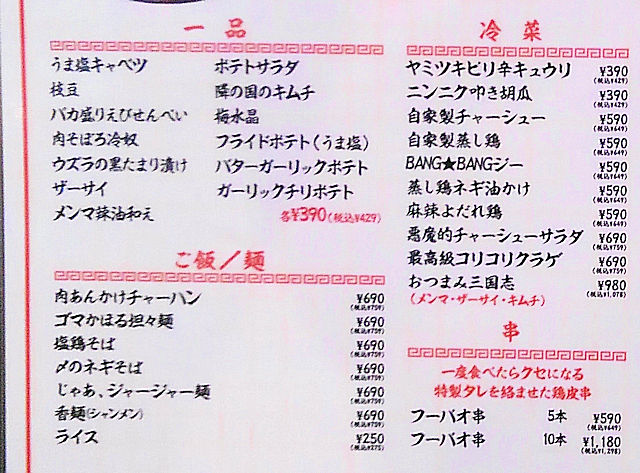 一品
うま塩キャベツ ポテトサラダ
枝豆 隣の国のキムチ
バカ盛りえびせんべい 梅水晶
肉そぼろ冷奴 フライドポテト(うま塩)
ウズラの黒たまり漬け バターガーリックポテト
ザーサイ ガーリックチリポテト
メンマ辣油和え 各¥390(税込¥429)
ご飯/麺
肉あんかけチャーハン ¥690(税込¥759)
ゴマかほる坦々麺 ¥690(税込¥759)
塩鶏そば ¥690(税込¥759)
〆のネギそば ¥690(税込¥759)
じゃあ、ジャージャー麺 ¥690(税込¥759)
香麺(シャンメン) ¥690(税込¥759)
ライス ¥250(税込¥275)
冷菜
ヤミツキピリ辛キュウリ ¥390(税込¥429)
ニンニク叩き胡瓜 ¥390(税込¥429)
自家製チャーシュー ¥590(税込¥649)
自家製蒸し鶏 ¥590(税込¥649)
BANG★BANGジー ¥590(税込¥649)
蒸し鶏ネギ油かけ ¥590(税込¥649)
麻辣よだれ鶏 ¥590(税込¥649)
悪魔的チャーシューサラダ ¥690(税込¥759)
最高級コリコリクラゲ ¥690(税込¥759)
おつまみ三国志 ¥980(税込¥1,078)
(メンマ・ザーサイ・キムチ)
串
一度食べたらクセになる
特製タレを絡ませた鶏皮串
フーバオ串 5本 ¥590(税込¥649)
フーバオ串 10本 ¥1,180(税込¥1,298)